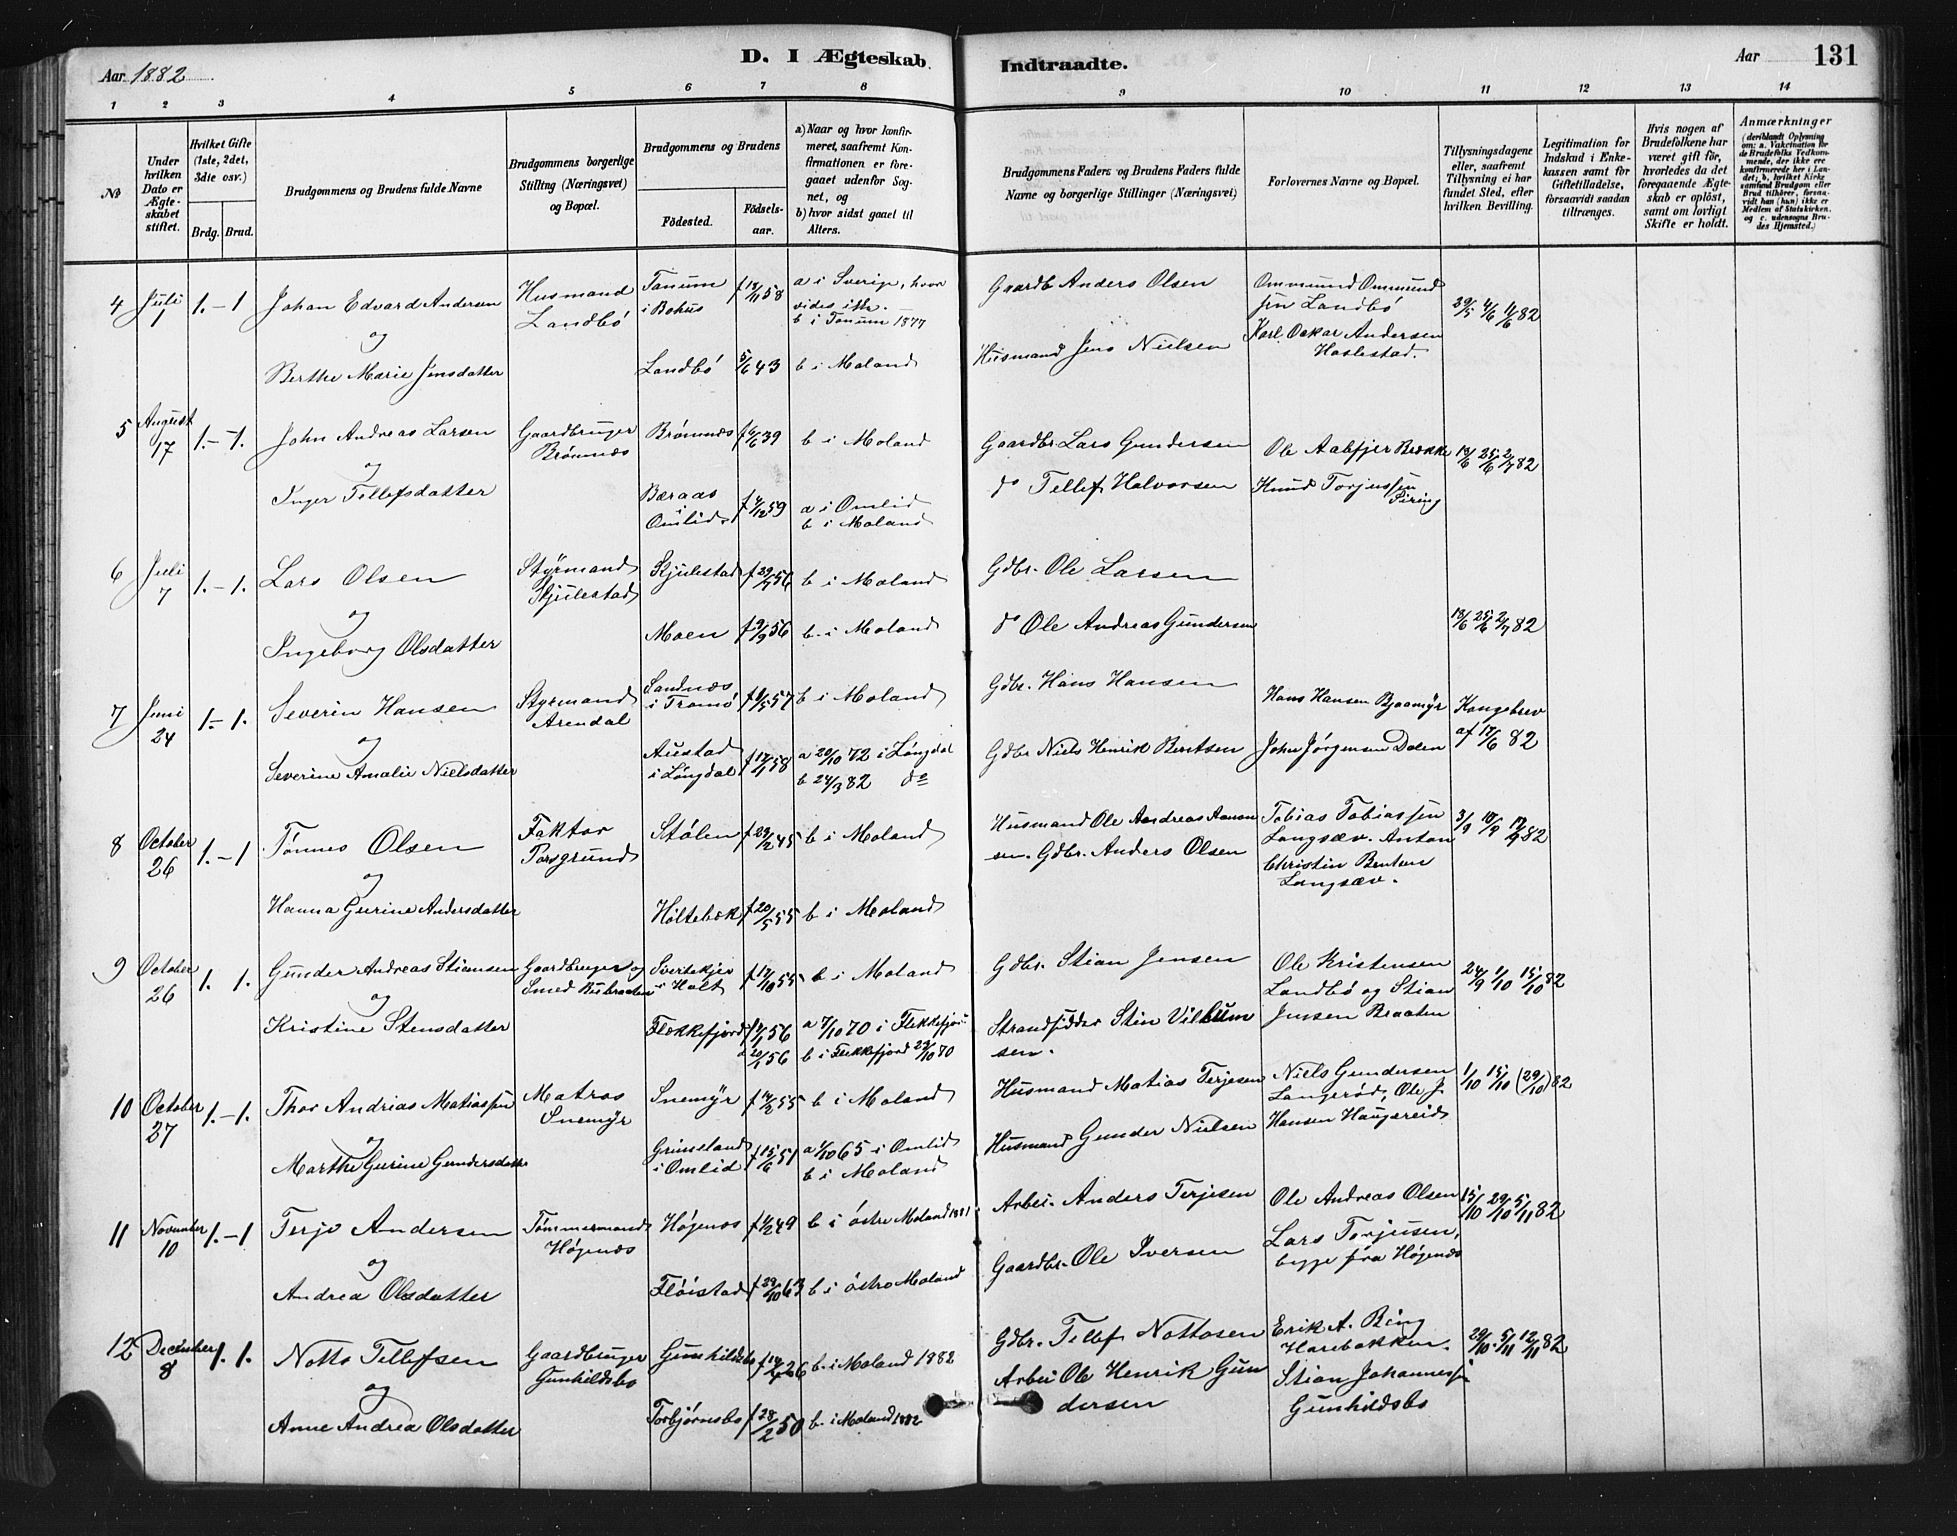 Aar 1882
D. I Ægteskab
Indtraadte.
Aar
131
1 2 3 4 5 6 7 8 9 10 11 12 13 14
No
Under hvilken Dato er Ægteskabet stiftet.
Hvilket Gifte (1ste, 2det, 3die osv.)
Brdg. Brud.
Brudgommens og Brudens fulde Navne
Brudgommens borgerlige Stilling (Næringsvei) og Bopæl.
Brudgommens og Brudens
Födested.
Födsels-aar.
a) Naar og hvor konfirmeret, saafremt Konfirmationen er foregaaet udenfor Sognet, og
b) hvor sidst gaaet til Alters.
Brudgommens Faders og Brudens Faders fulde Navne og borgerlige Stillinger (Næringsvei)
Forlovernes Navne og Bopæl.
Tillysningsdagene eller, saafremt Tillysning ei har fundet Sted, efter hvilken Bevilling.
Legitimation for Indskud i Enkekassen samt for Giftetilladelse, forsaavidt saadan tiltrænges.
Hvis nogen af Brudefolkene har været gift för, hvorledes da det foregaaende Ægteskab er oplöst, samt om lovligt Skifte er holdt.
Anmærkninger
(deriblandt Oplysning om: a. Vakcination for de Brudefolks Vedkommende, der ikke ere konfirmerede her i Landet; b. hvilket Kirkesamfund Brudgom eller Brud tilhörer, forsaavidt han (hun) ikke er Medlem af Statskirken, og c. udensogns Brudes Hjemsted.)
4 Juli 1 1.-1 Johan Edvard Andersen Husmand Landbö Tanum i Bohus f 18/11 58 a i Sverige, hvor vides ikke. b i Tanum 1877 Gaardb Anders Olsen Ommund Ommundsen Landbö Karl Oskar Andersen Haslestad. 29/5 4/6 11/6 82
og
Berthe Marie Jensdatter Landbö 5/6 43 b i Moland Husmand Jens Nielsen
5 August 17 1.-1. John Andreas Larsen Gaardbruger Brömnæs Brömnæs f 6/6 39 b i Moland Gaardbr. Lars Gundersen Ole Aabfjer Brække Knud Torjussen Piring 18/6 25/6 2/7 82
og
Inger Tellefsdatter Beraas i Omlid f 7/12 59 a i Omlid b i Moland do Tellef Halvorsen
6 Juli 7 1.-1. Lars Olsen Styrmand Skjulestad Skjulestad f 29/7 56 b i Moland Gdbr. Ole Larsen
og
Ingeborg Olsdatter Moen f 9/9 56 b. i Moland do Ole Andreas Gundersen 18/6 25/6 2/7 82
7 Juni 24 1.-1. Severin Hansen Styrmand Arendal Sandnæs i Tromö f 1/5 57 b i Moland Gdbr. Hans Hansen Hans Hansen Bjaamyr Kongebrev af 17/6 82
og
Severine Amalie Nielsdatter Austad i Löngdal f 17/1 58 a 20/10 72 i Löngdal b 24/3 82 do Gdbr Niels Henrik Bentsen John Jörgensen Dalen
8 October 26 1.-1 Tönnes Olsen Faktor Porsgrund Stölen f 23/2 45 b i Moland Husmand Ole Andreas Aanonsen. Gdbr. Anders Olsen Tobias Tobiassen Langsæv. Anton Christin Bentsen Langsæv. 3/9 10/9 17/9 82
og
Hanna Gurine Andersdatter Holtebæk f 20/5 55 b i Moland
9 October 26 1. 1. Gunder Andreas Stiansen Gaardbruger og Smed Bubraaten Svertekjær i Holt f 17/10 55 b i Moland Gdbr. Stian Jensen Ole Kristensen Landbö og Stian Jensen Braaten 24/9 1/10 15/10 82
og
Kristine Stensdatter Flækkefjord f 11/1 56 d 20/1 56 a 7/10 70 i Flekkefjord b i Flekkefjord 23/10 70 Strandsidder Stin Villumsen.
10 October 27 1.-1. Thor Andrias Matiassen Matros Snemyr Snemyr f 14/2 55 b i Moland Husmand Matias Terjesen Niels Gundersen Langeröd, Ole J. Hansen Haugereid 1/10 15/10 (29/10) 82
og
Marthe Gurine Gundersdatter Grimeland i Omlid f 15/6 51 a 1/10 65 i Omlid b i Moland Husmand Gunder Nielsen
11 November 10 1.-1 Terje Andersen Tömmermand Högenæs Högenæs f 1/2 49 b i östre Moland 1881 Arbei. Anders Terjesen Ole Andreas Olsen Lars Torjusen, begge fra Högenæs 15/10 29/10 5/11 82
og
Andrea Olsdatter Flöistad f 29/10 63 b i östre Moland Gaardbr. Ole Iversen
12 December 8 1. 1. Notto Tellefsen Gaardbruger Gunhildsbo Gunhildsbo f 14/7 26 b. i Moland 1882 Gdbr. Tellef Nottosen Erik A. Bing Harebakken. Stian Johannessen Gunhildsbo 29/10. 5/11 12/11 82
og
Anne Andrea Olsdatter Torbjörnsbo f 28/2 50 b. i Moland 1882 Arbei Ole Henrik Gundersen